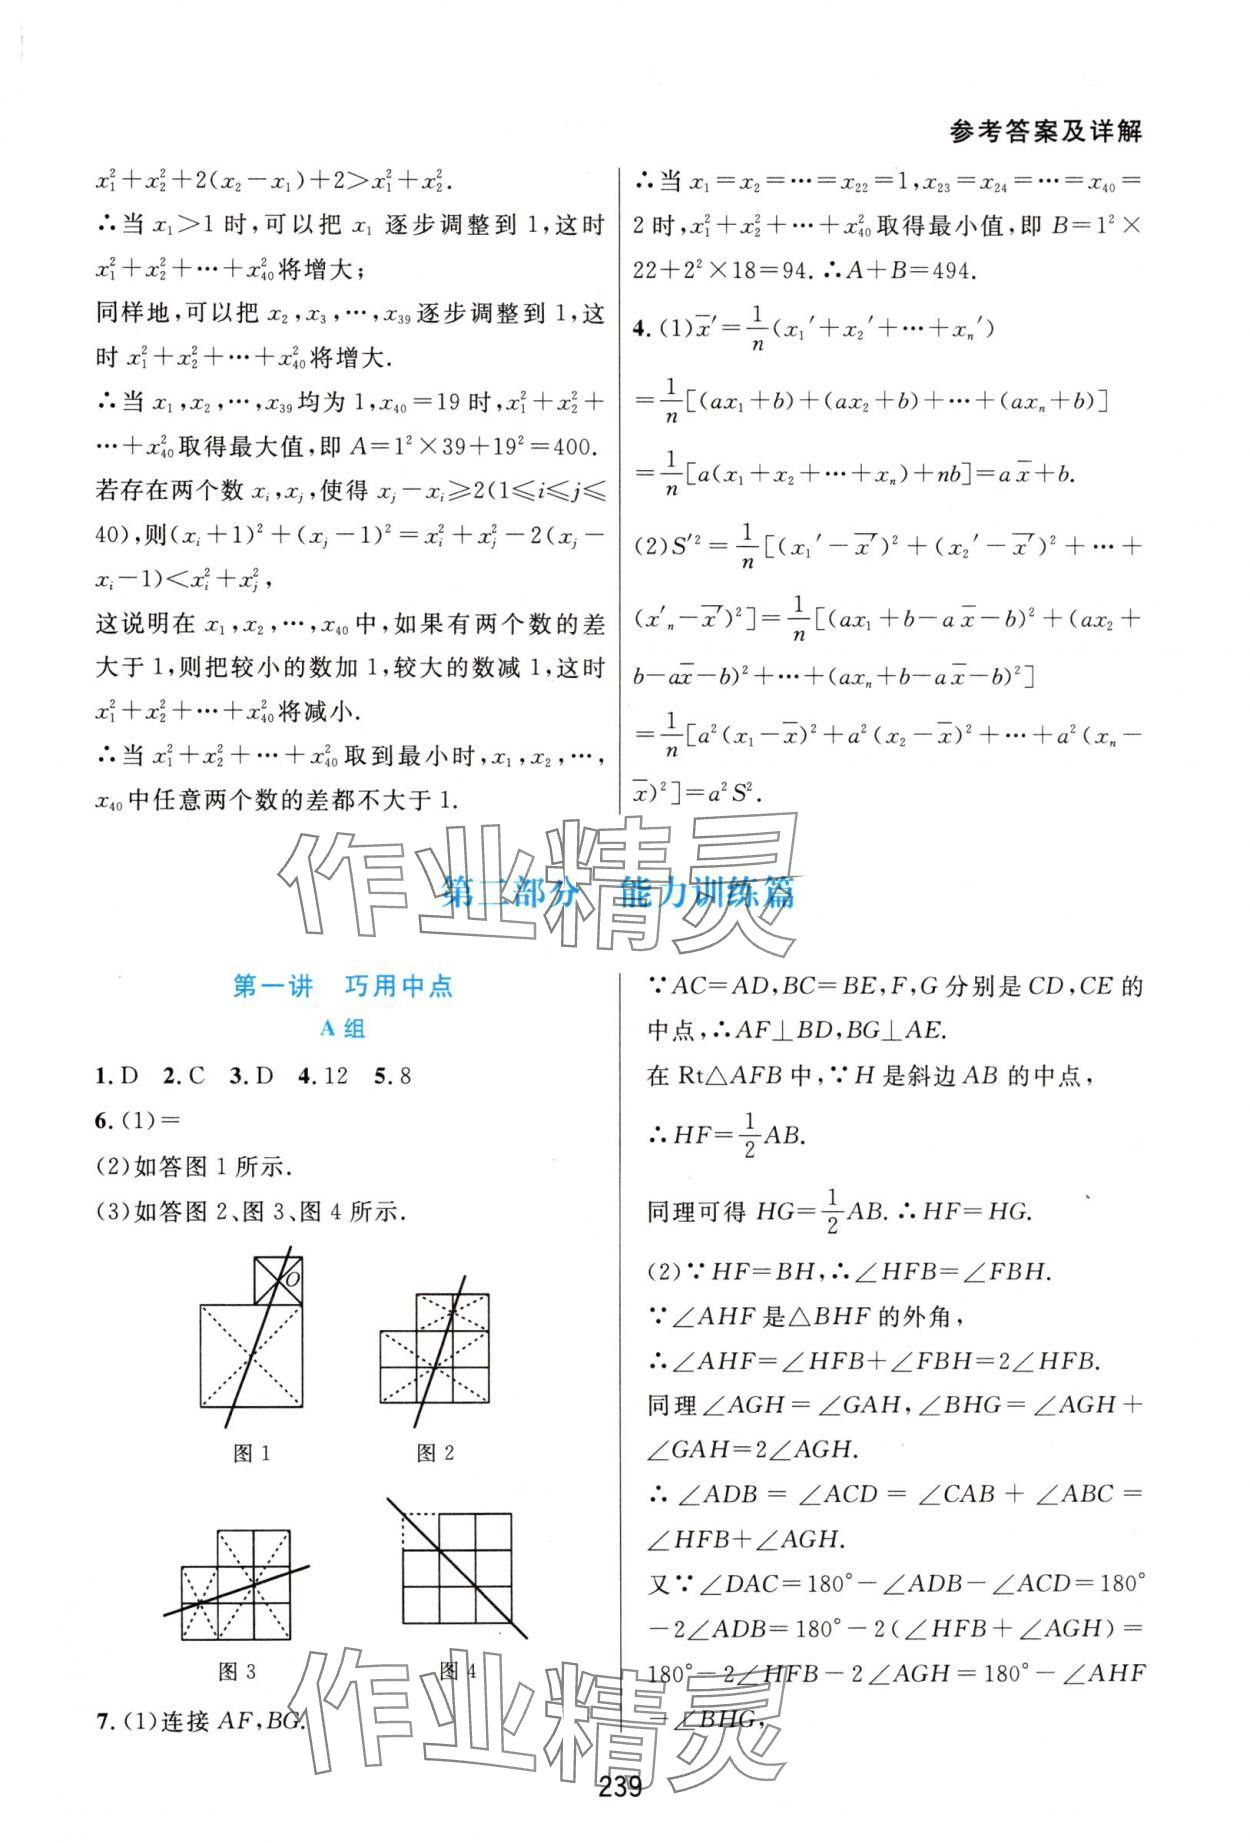 参考答案及详解
x₁²+x₂²+2(x₂-x₁)+2>x₁²+x₂².
∴当 x₁>1 时,可以把 x₁ 逐步调整到 1,这时
x₁²+x₂²+⋯+x₄₀²将增大;
同样地,可以把 x₂,x₃,⋯,x₃₉逐步调整到 1,这
时 x₁²+x₂²+⋯+x₄₀²将增大.
∴当 x₁,x₂,⋯,x₃₉均为 1,x₄₀=19 时,x₁²+x₂²+
⋯+x₄₀²取得最大值,即 A=1²×39+19²=400.
若存在两个数 xᵢ,xⱼ,使得 xⱼ-xᵢ≥2(1≤i≤j≤
40),则(xᵢ+1)²+(xⱼ-1)²=xᵢ²+xⱼ²-2(xⱼ-
xᵢ-1)<xᵢ²+xⱼ²,
这说明在 x₁,x₂,⋯,x₄₀中,如果有两个数的差
大于 1,则把较小的数加 1,较大的数减 1,这时
x₁²+x₂²+⋯+x₄₀²将减小.
∴当 x₁²+x₂²+⋯+x₄₀²取到最小时,x₁,x₂,⋯,
x₄₀中任意两个数的差都不大于 1.
∴当 x₁=x₂=⋯=x₂₂=1,x₂₃=x₂₄=⋯=x₄₀=
2 时,x₁²+x₂²+⋯+x₄₀²取得最小值,即 B=1²×
22+2²×18=94.∴A+B=494.
4.(1)x̄′=1/n(x₁′+x₂′+⋯+xₙ′)
=1/n[(ax₁+b)+(ax₂+b)+⋯+(axₙ+b)]
=1/n[a(x₁+x₂+⋯+xₙ)+nb]=ax̄+b.
(2)S′²=1/n[(x₁′-x̄′)²+(x₂′-x̄′)²+⋯+
(x′ₙ-x̄′)²]=1/n[(ax₁+b-ax̄-b)²+(ax₂+
b-ax̄-b)²+⋯+(axₙ+b-ax̄-b)²]
=1/n[a²(x₁-x̄)²+a²(x₂-x̄)²+⋯+a²(xₙ-
x̄)²]=a²S².
作业精灵
第二部分 能力训练篇
第一讲 巧用中点
A 组
1.D 2.C 3.D 4.12 5.8
6.(1)=
(2)如答图 1 所示.
(3)如答图 2、图 3、图 4 所示.
O
图 1
图 2
图 3
图 4
7.(1)连接 AF,BG.
∵AC=AD,BC=BE,F,G 分别是 CD,CE 的
中点,∴AF⊥BD,BG⊥AE.
在 Rt△AFB 中,∵H 是斜边 AB 的中点,
∴HF=1/2AB.
同理可得 HG=1/2AB.∴HF=HG.
(2)∵HF=BH,∴∠HFB=∠FBH.
∵∠AHF 是△BHF 的外角,
∴∠AHF=∠HFB+∠FBH=2∠HFB.
同理∠AGH=∠GAH,∠BHG=∠AGH+
∠GAH=2∠AGH.
∴∠ADB=∠ACD=∠CAB+∠ABC=
∠HFB+∠AGH.
又∵∠DAC=180°-∠ADB-∠ACD=180°
-2∠ADB=180°-2(∠HFB+∠AGH)=
180°-2∠HFB-2∠AGH=180°-∠AHF
-∠BHG,
作业精灵
239